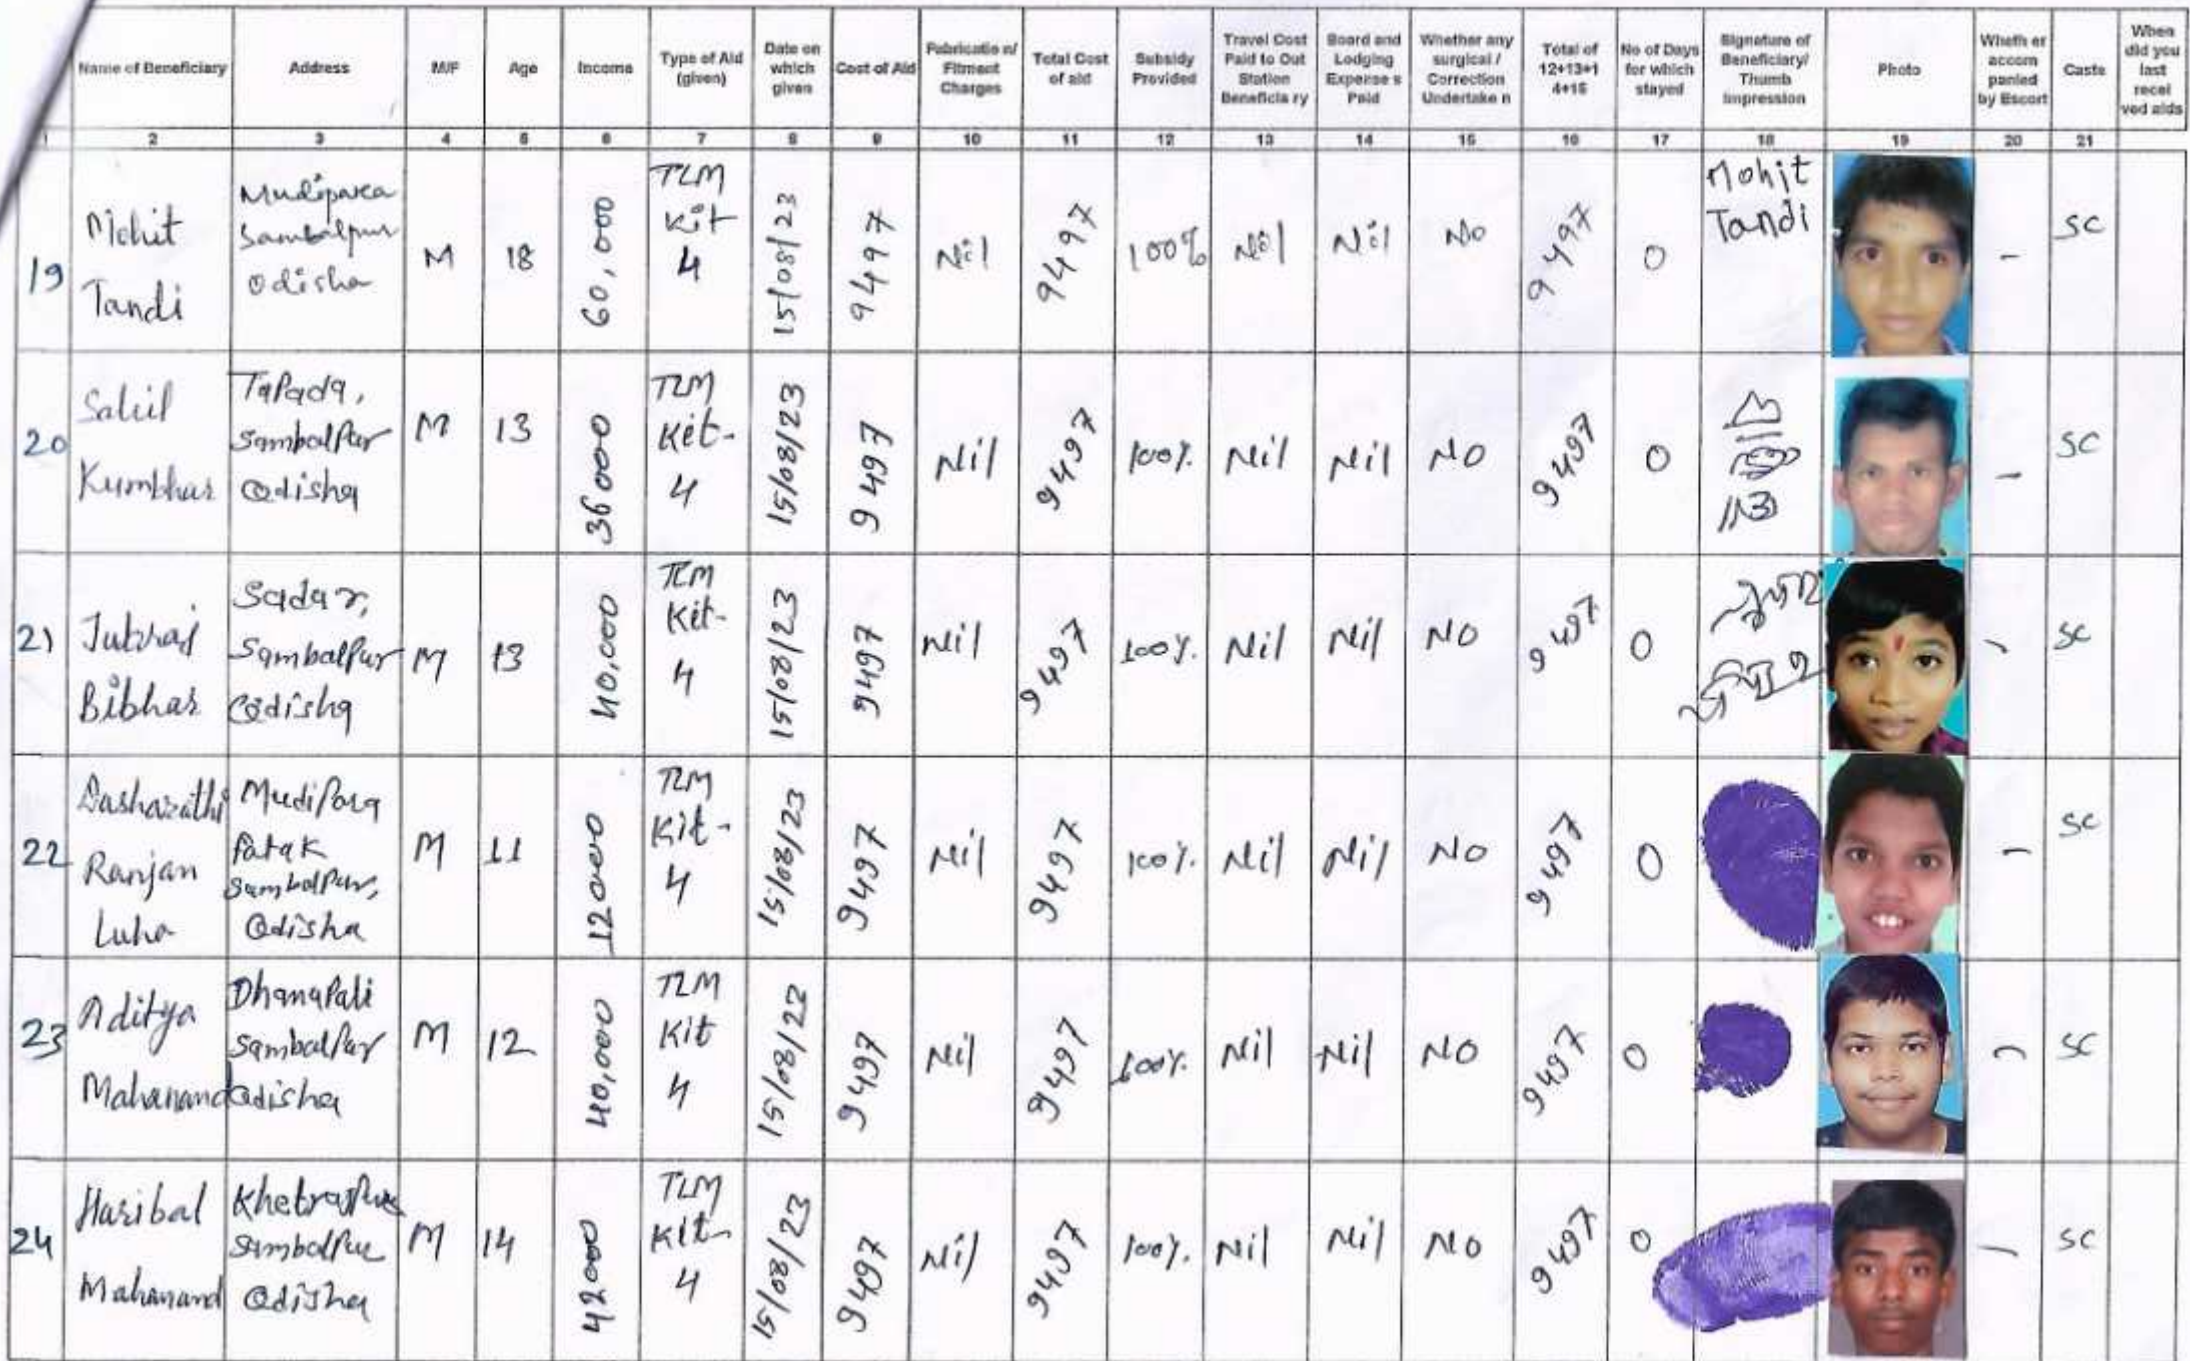 Name of Beneficiary Address M/F Age Income Type of Aid (given) Date on which given Cost of Aid Fabricatio n/ Fitment Charges Total Cost of aid Subsidy Provided Travel Cost Paid to Out Station Beneficia ry Board and Lodging Expense s Paid Whether any surgical / Correction Undertake n Total of 12+13+1 4+15 No of Days for which stayed Signature of Beneficiary/ Thumb Impression Photo Wheth er accom panied by Escort Caste When did you last recei ved aids
1 2 3 4 5 6 7 8 9 10 11 12 13 14 15 16 17 18 19 20 21
19 Mohit Tandi Mudipara Sambalpur Odisha M 18 60,000 TLM Kit 4 15/08/23 9497 Nil 9497 100% Nil Nil No 9497 0 Mohit Tandi - SC
20 Salil Kumbhar Tapada, Sambalpur Odisha M 13 36000 TLM Kit- 4 15/08/23 9497 Nil 9497 100% Nil Nil NO 9497 0 - SC
21 Jubraj Bibhar Sadar, Sambalpur Odisha M 13 40,000 TLM Kit- 4 15/08/23 9497 Nil 9497 100% Nil Nil NO 9497 0 - SC
22 Dasharathi Ranjan Luha Mudipara Patak Sambalpur, Odisha M 11 12000 TLM Kit- 4 15/08/23 9497 Nil 9497 100% Nil Nil NO 9497 0 - SC
23 Aditya Mahanand Dhanapali Sambalpur Odisha M 12 40,000 TLM Kit 4 15/08/22 9497 Nil 9497 100% Nil Nil NO 9497 0 - SC
24 Haribal Mahanand Khetrajpur Sambalpur Odisha M 14 42000 TLM Kit- 4 15/08/23 9497 Nil 9497 100% Nil Nil NO 9497 0 - SC